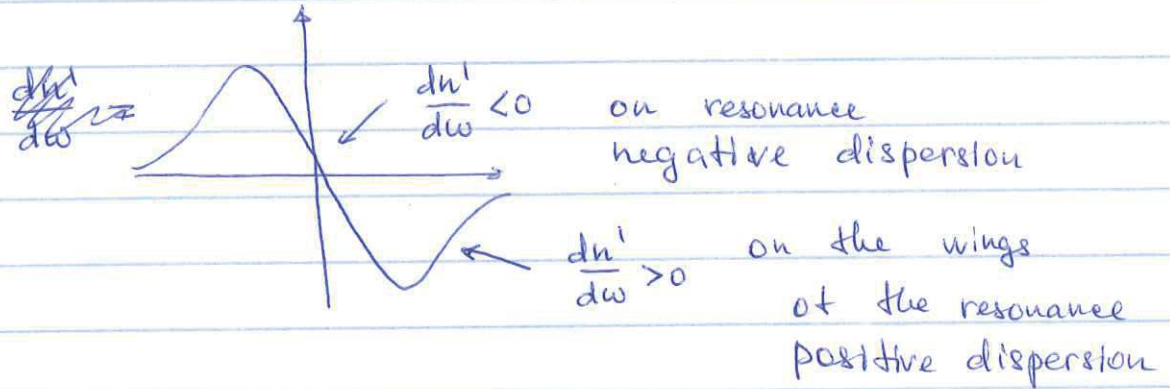 dn'/dω <0 on resonance
negative dispersion
dn'/dω >0 on the wings
of the resonance
positive dispersion